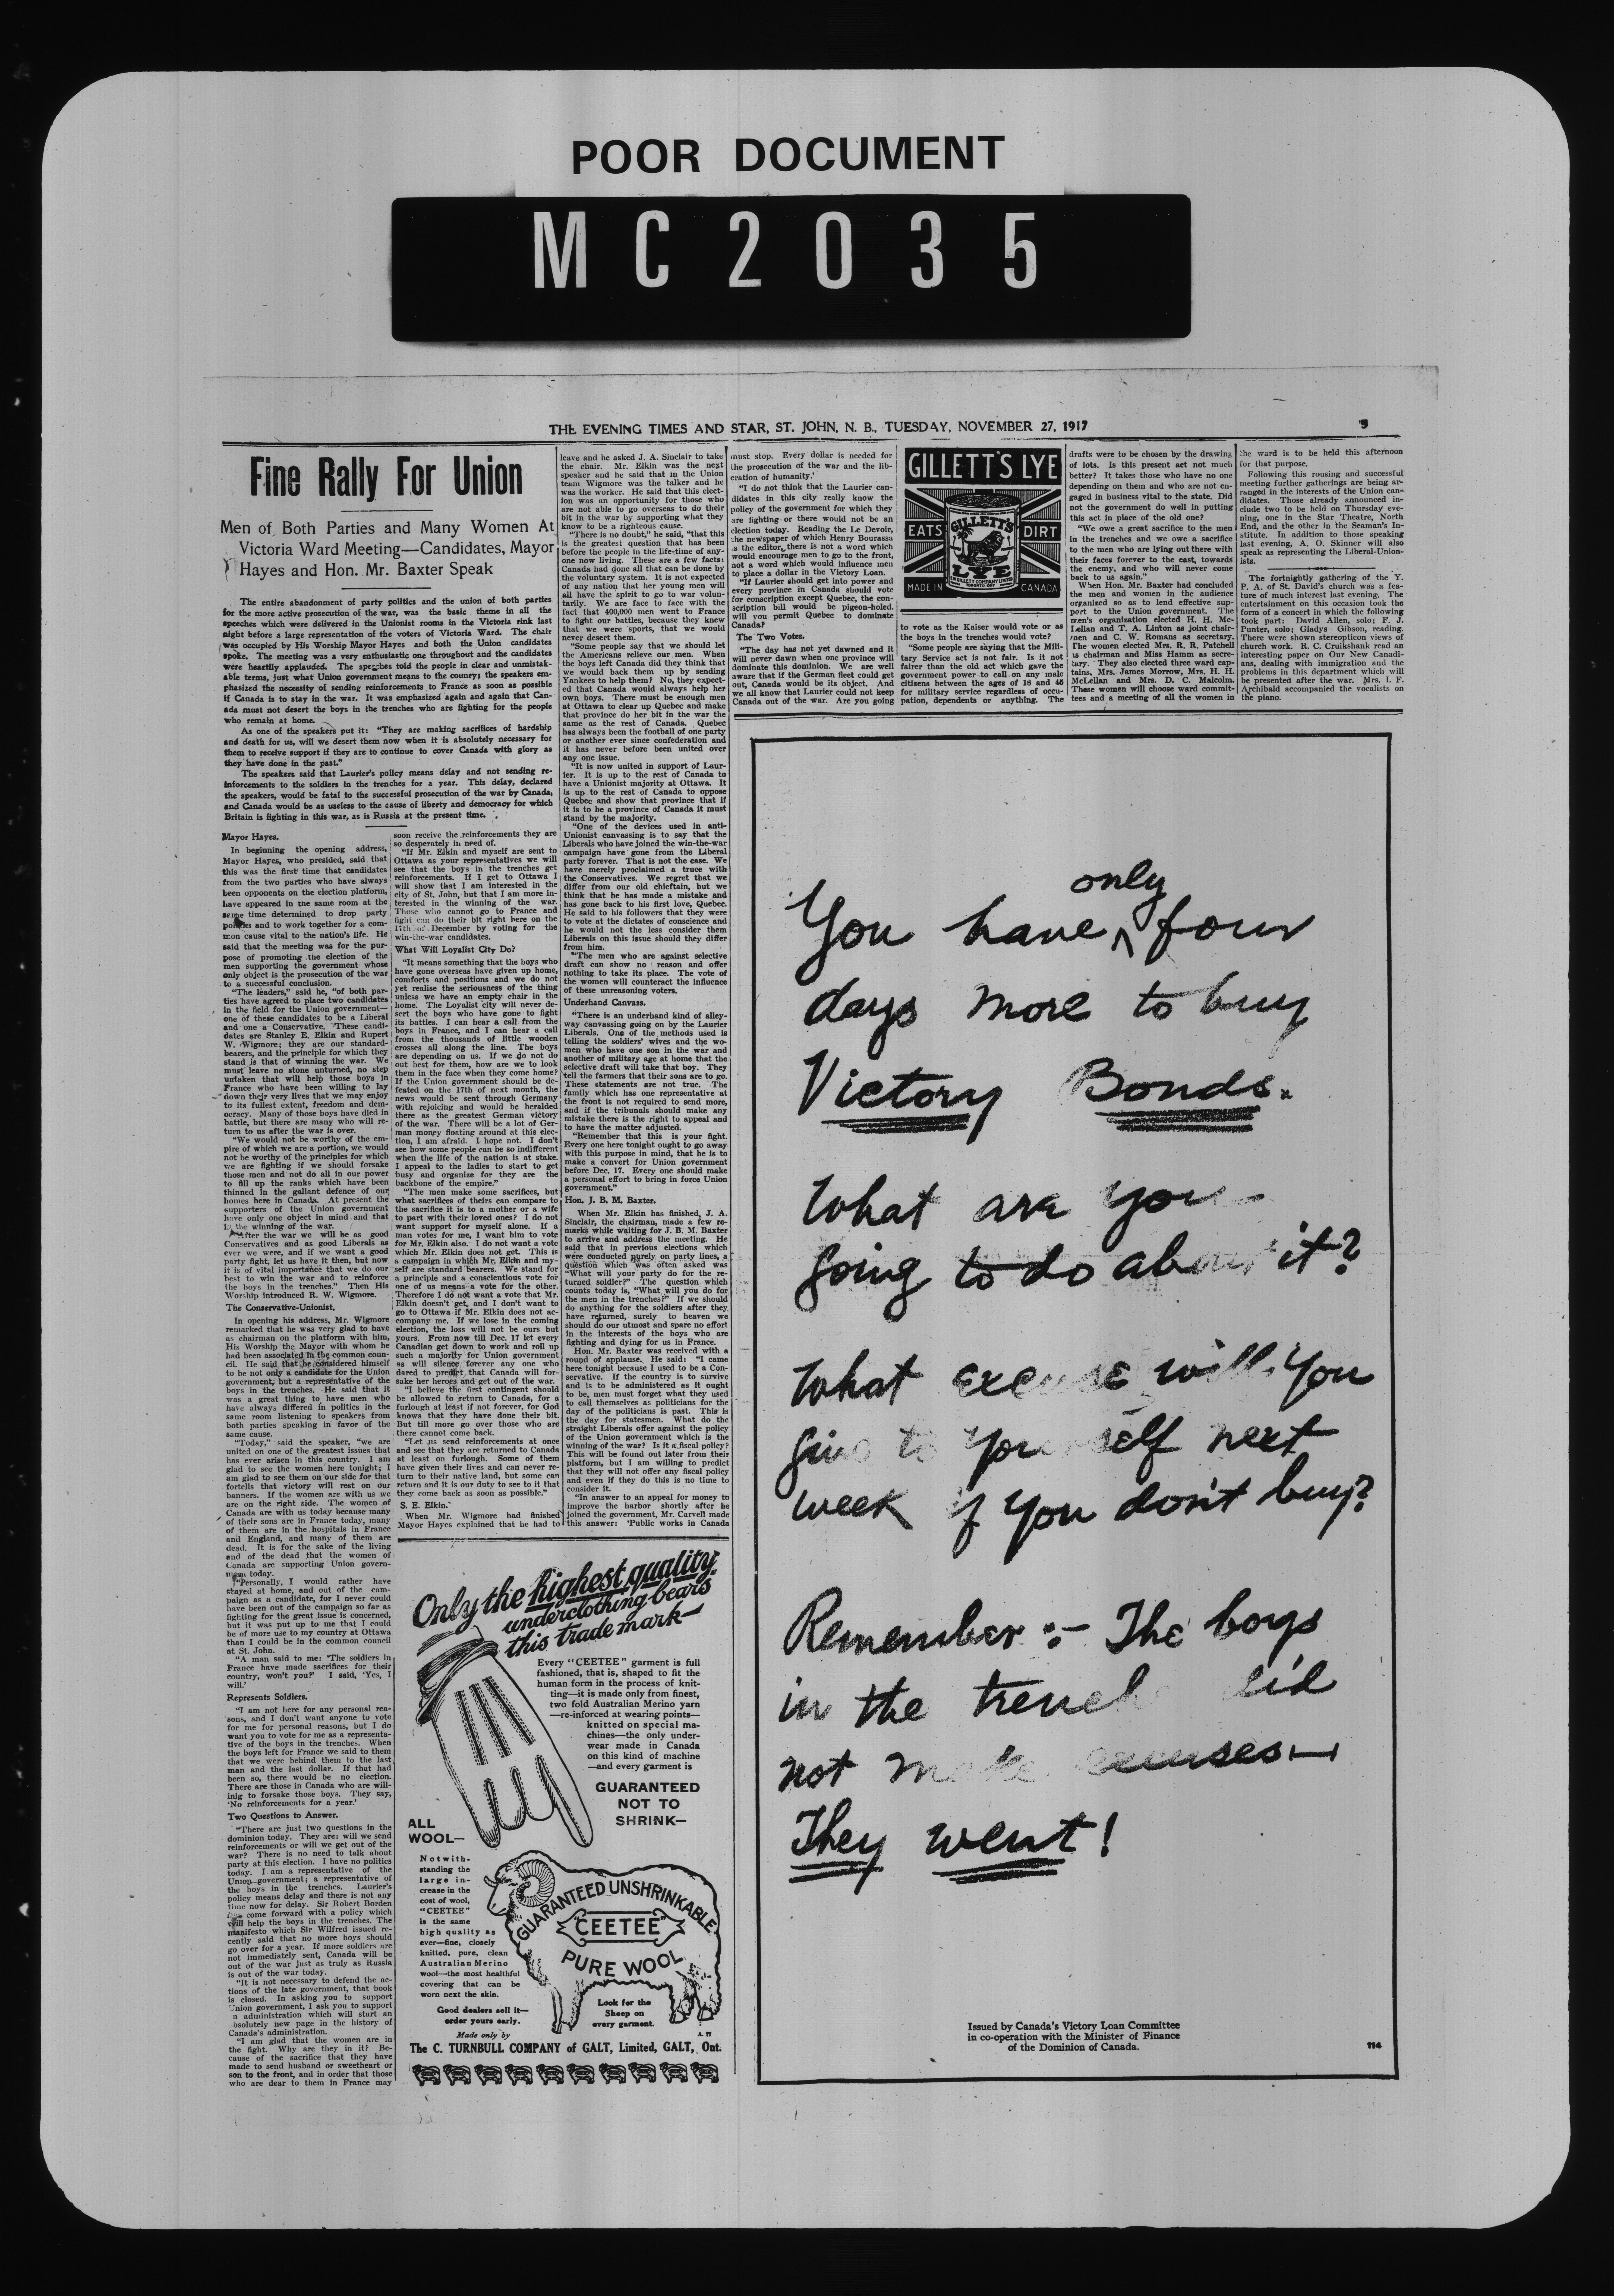 POOR DOCUMENT
MC2035
THE EVENING TIMES AND STAR, ST. JOHN, N. B., TUESDAY, NOVEMBER 27, 1917
Fine Rally For Union
Men of Both Parties and Many Women At
Victoria Ward Meeting—Candidates, Mayor
Hayes and Hon. Mr. Baxter Speak
The entire abandonment of party politics and the union of both parties
for the more active prosecution of the war, was the basic theme in all the
speeches which were delivered in the Unionist rooms in the Victoria rink last
night before a large representation of the voters of Victoria Ward. The chair
was occupied by His Worship Mayor Hayes and both the Union candidates
spoke. The meeting was a very enthusiastic one throughout and the candidates
were heartily applauded. The speeches told the people in clear and unmistak-
able terms, just what Union government means to the country; the speakers em-
phasized the necessity of sending reinforcements to France as soon as possible
if Canada is to stay in the war. It was emphasized again and again that Can-
ada must not desert the boys in the trenches who are fighting for the people
who remain at home.
As one of the speakers put it: "They are making sacrifices of hardship
and death for us, will we desert them now when it is absolutely necessary for
them to receive support if they are to continue to cover Canada with glory as
they have done in the past."
The speakers said that Laurier's policy means delay and not sending re-
inforcements to the soldiers in the trenches for a year. This delay, declared
the speakers, would be fatal to the successful prosecution of the war by Canada,
and Canada would be as useless to the cause of liberty and democracy for which
Britain is fighting in this war, as is Russia at the present time.
Mayor Hayes.
In beginning the opening address,
Mayor Hayes, who presided, said that
this was the first time that candidates
from the two parties who have always
been opponents on the election platform,
have appeared in the same room at the
same time determined to drop party
politics and to work together for a com-
mon cause vital to the nation's life. He
said that the meeting was for the pur-
pose of promoting the election of the
men supporting the government whose
only object is the prosecution of the war
to a successful conclusion.
"The leaders," said he, "of both par-
ties have agreed to place two candidates
in the field for the Union government—
one of these candidates to be a Liberal
and one a Conservative. These candi-
dates are Stanley E. Elkin and Rupert
W. Wigmore; they are our standard-
bearers, and the principle for which they
stand is that of winning the war. We
must leave no stone unturned, no step
untaken that will help those boys in
France who have been willing to lay
down their very lives that we may enjoy
to its fullest extent, freedom and dem-
ocracy. Many of those boys have died in
battle, but there are many who will re-
turn to us after the war is over.
"We would not be worthy of the em-
pire of which we are a portion, we would
not be worthy of the principles for which
we are fighting if we should forsake
those men and not do all in our power
to fill up the ranks which have been
thinned in the gallant defence of our
homes here in Canada. At present the
supporters of the Union government
have only one object in mind and that
is the winning of the war.
"After the war we will be as good
Conservatives and as good Liberals as
ever we were, and if we want a good
party fight, let us have it then, but now
it is of vital importance that we do our
best to win the war and to reinforce
the boys in the trenches." Then His
Worship introduced R. W. Wigmore.
The Conservative-Unionist.
In opening his address, Mr. Wigmore
remarked that he was very glad to have
as chairman on the platform with him,
His Worship the Mayor with whom he
had been associated in the common coun-
cil. He said that he considered himself
to be not only a candidate for the Union
government, but a representative of the
boys in the trenches. He said that it
was a great thing to have men who
have always differed in politics in the
same room listening to speakers from
both parties speaking in favor of the
same cause.
"Today," said the speaker, "we are
united on one of the greatest issues that
has ever arisen in this country. I am
glad to see the women here tonight; I
am glad to see them on our side for that
fortells that victory will rest on our
banners. If the women are with us we
are on the right side. The women of
Canada are with us today because many
of their sons are in France today, many
of them are in the hospitals in France
and England, and many of them are
dead. It is for the sake of the living
and of the dead that the women of
Canada are supporting Union govern-
ment today.
"Personally, I would rather have
stayed at home, and out of the cam-
paign as a candidate, for I never could
have been out of the campaign so far as
fighting for the great issue is concerned,
but it was put up to me that I could
be of more use to my country at Ottawa
than I could be in the common council
at St. John.
"A man said to me: 'The soldiers in
France have made sacrifices for their
country, won't you?' I said, 'Yes, I
will.'
Represents Soldiers.
"I am not here for any personal rea-
sons, and I don't want anyone to vote
for me for personal reasons, but I do
want you to vote for me as a representa-
tive of the boys in the trenches. When
the boys left for France we said to them
that we were behind them to the last
man and the last dollar. If that had
been so, there would be no election.
There are those in Canada who are will-
inig to forsake those boys. They say,
'No reinforcements for a year.'
Two Questions to Answer.
"There are just two questions in the
dominion today. They are: will we send
reinforcements or will we get out of the
war? There is no need to talk about
party at this election. I have no politics
today. I am a representative of the
Union government; a representative of
the boys in the trenches. Laurier's
policy means delay and there is not any
time now for delay. Sir Robert Borden
has come forward with a policy which
will help the boys in the trenches. The
manifesto which Sir Wilfred issued re-
cently said that no more boys should
go over for a year. If more soldiers are
not immediately sent, Canada will be
out of the war just as truly as Russia
is out of the war today.
"It is not necessary to defend the ac-
tions of the late government, that book
is closed. In asking you to support
Union government, I ask you to support
an administration which will start an
absolutely new page in the history of
Canada's administration.
"I am glad that the women are in
the fight. Why are they in it? Be-
cause of the sacrifice that they have
made to send husband or sweetheart or
son to the front, and in order that those
who are dear to them in France may
soon receive the reinforcements they are
so desperately in need of.
"If Mr. Elkin and myself are sent to
Ottawa as your representatives we will
see that the boys in the trenches get
reinforcements. If I get to Ottawa I
will show that I am interested in the
city of St. John, but that I am more in-
terested in the winning of the war.
Those who cannot go to France and
fight can do their bit right here on the
17th of December by voting for the
win-the-war candidates.
What Will Loyalist City Do?
"It means something that the boys who
have gone overseas have given up home,
comforts and positions and we do not
yet realise the seriousness of the thing
unless we have an empty chair in the
home. The Loyalist city will never de-
sert the boys who have gone to fight
its battles. I can hear a call from the
boys in France, and I can hear a call
from the thousands of little wooden
crosses all along the line. The boys
are depending on us. If we do not do
out best for them, how are we to look
them in the face when they come home?
If the Union government should be de-
feated on the 17th of next month, the
news would be sent through Germany
with rejoicing and would be heralded
there as the greatest German victory
of the war. There will be a lot of Ger-
man money floating around at this elec-
tion, I am afraid. I hope not. I don't
see how some people can be so indifferent
when the life of the nation is at stake.
I appeal to the ladies to start to get
busy and organize for they are the
backbone of the empire."
"The men make some sacrifices, but
what sacrifices of theirs can compare to
the sacrifice it is to a mother or a wife
to part with their loved ones? I do not
want support for myself alone. If a
man votes for me, I want him to vote
for Mr. Elkin also. I do not want a vote
which Mr. Elkin does not get. This is
a campaign in which Mr. Elkin and my-
self are standard bearers. We stand for
a principle and a conscientious vote for
one of us means a vote for the other.
Therefore I do not want a vote that Mr.
Elkin doesn't get, and I don't want to
go to Ottawa if Mr. Elkin does not ac-
company me. If we lose in the coming
election, the loss will not be ours but
yours. From now till Dec. 17 let every
Canadian get down to work and roll up
such a majority for Union government
as will silence forever any one who
dared to predict that Canada will for-
sake her heroes and get out of the war.
"I believe the first contingent should
be allowed to return to Canada, for a
furlough at least if not forever, for God
knows that they have done their bit.
But till more go over those who are
there cannot come back.
"Let us send reinforcements at once
and see that they are returned to Canada
at least on furlough. Some of them
have given their lives and can never re-
turn to their native land, but some can
return and it is our duty to see to it that
they come back as soon as possible."
S. E. Elkin.
When Mr. Wigmore had finished
Mayor Hayes explained that he had to
leave and he asked J. A. Sinclair to take
the chair. Mr. Elkin was the next
speaker and he said that in the Union
team Wigmore was the talker and he
was the worker. He said that this elect-
ion was an opportunity for those who
are not able to go overseas to do their
bit in the war by supporting what they
know to be a righteous cause.
"There is no doubt," he said, "that this
is the greatest question that has been
before the people in the life-time of any-
one now living. These are a few facts:
Canada had done all that can be done by
the voluntary system. It is not expected
of any nation that her young men will
all have the spirit to go to war volun-
tarily. We are face to face with the
fact that 400,000 men went to France
to fight our battles, because they knew
that we were sports, that we would
never desert them.
"Some people say that we should let
the Americans relieve our men. When
the boys left Canada did they think that
we would back them up by sending
Yankees to help them? No, they expect-
ed that Canada would always help her
own boys. There must be enough men
at Ottawa to clear up Quebec and make
that province do her bit in the war the
same as the rest of Canada. Quebec
has always been the football of one party
or another ever since confederation and
it has never before been united over
any one issue.
"It is now united in support of Laur-
ier. It is up to the rest of Canada to
have a Unionist majority at Ottawa. It
is up to the rest of Canada to oppose
Quebec and show that province that if
it is to be a province of Canada it must
stand by the majority.
"One of the devices used in anti-
Unionist canvassing is to say that the
Liberals who have joined the win-the-war
campaign have gone from the Liberal
party forever. That is not the case. We
have merely proclaimed a truce with
the Conservatives. We regret that we
differ from our old chieftain, but we
think that he has made a mistake and
has gone back to his first love, Quebec.
He said to his followers that they were
to vote at the dictates of conscience and
he would not the less consider them
Liberals on this issue should they differ
from him.
"The men who are against selective
draft can show no reason and offer
nothing to take its place. The vote of
the women will counteract the influence
of these unreasoning voters.
Underhand Canvass.
"There is an underhand kind of alley-
way canvassing going on by the Laurier
Liberals. One of the methods used is
telling the soldiers' wives and the wo-
men who have one son in the war and
another of military age at home that the
selective draft will take that boy. They
tell the farmers that their sons are to go.
These statements are not true. The
family which has one representative at
the front is not required to send more,
and if the tribunals should make any
mistake there is the right to appeal and
to have the matter adjusted.
"Remember that this is your fight.
Every one here tonight ought to go away
with this purpose in mind, that he is to
make a convert for Union government
before Dec. 17. Every one should make
a personal effort to bring in force Union
government."
Hon. J. B. M. Baxter.
When Mr. Elkin has finished, J. A.
Sinclair, the chairman, made a few re-
marks while waiting for J. B. M. Baxter
to arrive and address the meeting. He
said that in previous elections which
were conducted purely on party lines, a
question which was often asked was
"What will your party do for the re-
turned soldier?" The question which
counts today is, "What will you do for
the men in the trenches?" If we should
do anything for the soldiers after they
have returned, surely to heaven we
should do our utmost and spare no effort
in the interests of the boys who are
fighting and dying for us in France.
Hon. Mr. Baxter was received with a
round of applause. He said: "I came
here tonight because I used to be a Con-
servative. If the country is to survive
and is to be administered as it ought
to be, men must forget what they used
to call themselves as politicians for the
day of the politicians is past. This is
the day for statesmen. What do the
straight Liberals offer against the policy
of the Union government which is the
winning of the war? Is it a fiscal policy?
This will be found out later from their
platform, but I am willing to predict
that they will not offer any fiscal policy
and even if they do this is no time to
consider it.
"In answer to an appeal for money to
improve the harbor shortly after he
joined the government, Mr. Carvell made
this answer: 'Public works in Canada
must stop. Every dollar is needed for
the prosecution of the war and the lib-
eration of humanity.'
"I do not think that the Laurier can-
didates in this city really know the
policy of the government for which they
are fighting or there would not be an
election today. Reading the Le Devoir,
the newspaper of which Henry Bourassa
is the editor, there is not a word which
would encourage men to go to the front,
not a word which would influence men
to place a dollar in the Victory Loan.
"If Laurier should get into power and
every province in Canada should vote
for conscription except Quebec, the con-
scription bill would be pigeon-holed.
will you permit Quebec to dominate
Canada?
The Two Votes.
"The day has not yet dawned and it
will never dawn when one province will
dominate this dominion. We are well
aware that if the German fleet could get
out, Canada would be its object. And
we all know that Laurier could not keep
Canada out of the war. Are you going
GILLETT'S LYE
EATS DIRT
GILLETT'S
LYE
E.W. GILLETT COMPANY LIMITED
MADE IN CANADA
to vote as the Kaiser would vote or as
the boys in the trenches would vote?
"Some people are saying that the Mili-
tary Service act is not fair. Is it not
fairer than the old act which gave the
government power to call on any male
citizens between the ages of 18 and 45
for military service regardless of occu-
pation, dependents or anything. The
drafts were to be chosen by the drawing
of lots. Is this present act not much
better? It takes those who have no one
depending on them and who are not en-
gaged in business vital to the state. Did
not the government do well in putting
this act in place of the old one?
"We owe a great sacrifice to the men
in the trenches and we owe a sacrifice
to the men who are lying out there with
their faces forever to the east, towards
the enemy, and who will never come
back to us again."
When Hon. Mr. Baxter had concluded
the men and women in the audience
organized so as to lend effective sup-
port to the Union government. The
men's organization elected H. H. Mc-
Lellan and T. A. Linton as joint chair-
men and C. W. Romans as secretary.
The women elected Mrs. R. R. Patchell
as chairman and Miss Hamm as secre-
tary. They also elected three ward cap-
tains, Mrs. James Morrow, Mrs. H. H.
McLellan and Mrs. D. C. Malcolm.
These women will choose ward commit-
tees and a meeting of all the women in
the ward is to be held this afternoon
for that purpose.
Following this rousing and successful
meeting further gatherings are being ar-
ranged in the interests of the Union can-
didates. Those already announced in-
clude two to be held on Thursday eve-
ning, one in the Star Theatre, North
End, and the other in the Seaman's In-
stitute. In addition to those speaking
last evening, A. O. Skinner will also
speak as representing the Liberal-Union-
ists.
The fortnightly gathering of the Y.
P. A. of St. David's church was a fea-
ture of much interest last evening. The
entertainment on this occasion took the
form of a concert in which the following
took part: David Allen, solo; F. J.
Punter, solo; Gladys Gibson, reading.
There were shown stereopticon views of
church work. R. C. Cruikshank read an
interesting paper on Our New Canadi-
ans, dealing with immigration and the
problems in this department which will
be presented after the war. Mrs. I. F.
Archibald accompanied the vocalists on
the piano.
Only the highest quality
underclothing bears
this trade mark—
Every "CEETEE" garment is full
fashioned, that is, shaped to fit the
human form in the process of knit-
ting—it is made only from finest,
two fold Australian Merino yarn
—re-inforced at wearing points—
knitted on special ma-
chines—the only under-
wear made in Canada
on this kind of machine
—and every garment is
GUARANTEED
NOT TO
SHRINK—
ALL
WOOL—
Notwith-
standing the
large in-
crease in the
cost of wool,
"CEETEE"
is the same
high quality as
ever—fine, closely
knitted, pure, clean
Australian Merino
wool—the most healthful
covering that can be
worn next the skin.
Good dealers sell it—
order yours early.
GUARANTEED UNSHRINKABLE
"CEETEE"
PURE WOOL
Look for the
Sheep on
every garment.
Made only by
The C. TURNBULL COMPANY of GALT, Limited, GALT, Ont.
You have only four
days more to buy
Victory Bonds.
What are you
going to do about it?
What excuse will you
give to yourself next
week if you don't buy?
Remember:— The boys
in the trenches did
not make excuses—
They went!
Issued by Canada's Victory Loan Committee
in co-operation with the Minister of Finance
of the Dominion of Canada.
114